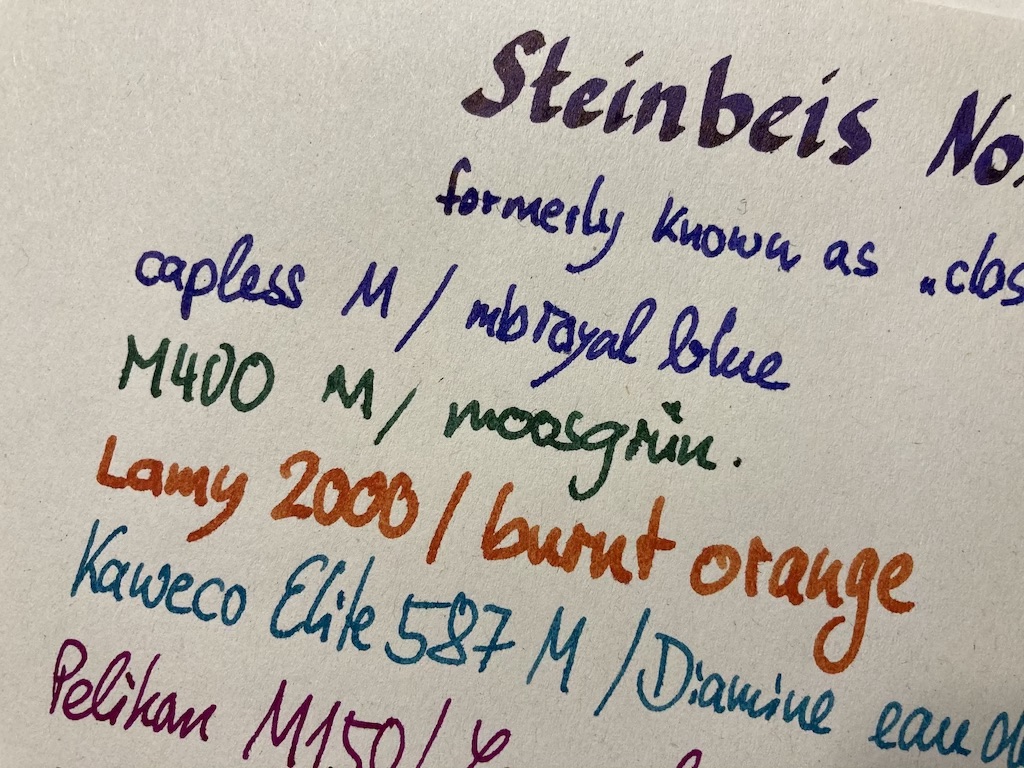 Steinbeis No
formerly known as „clos
capless M / mb royal blue
M400 M / moosgrün.
Lamy 2000 / burnt orange
Kaweco Elite 587 M / Diamine eau d
Pelikan M150 /